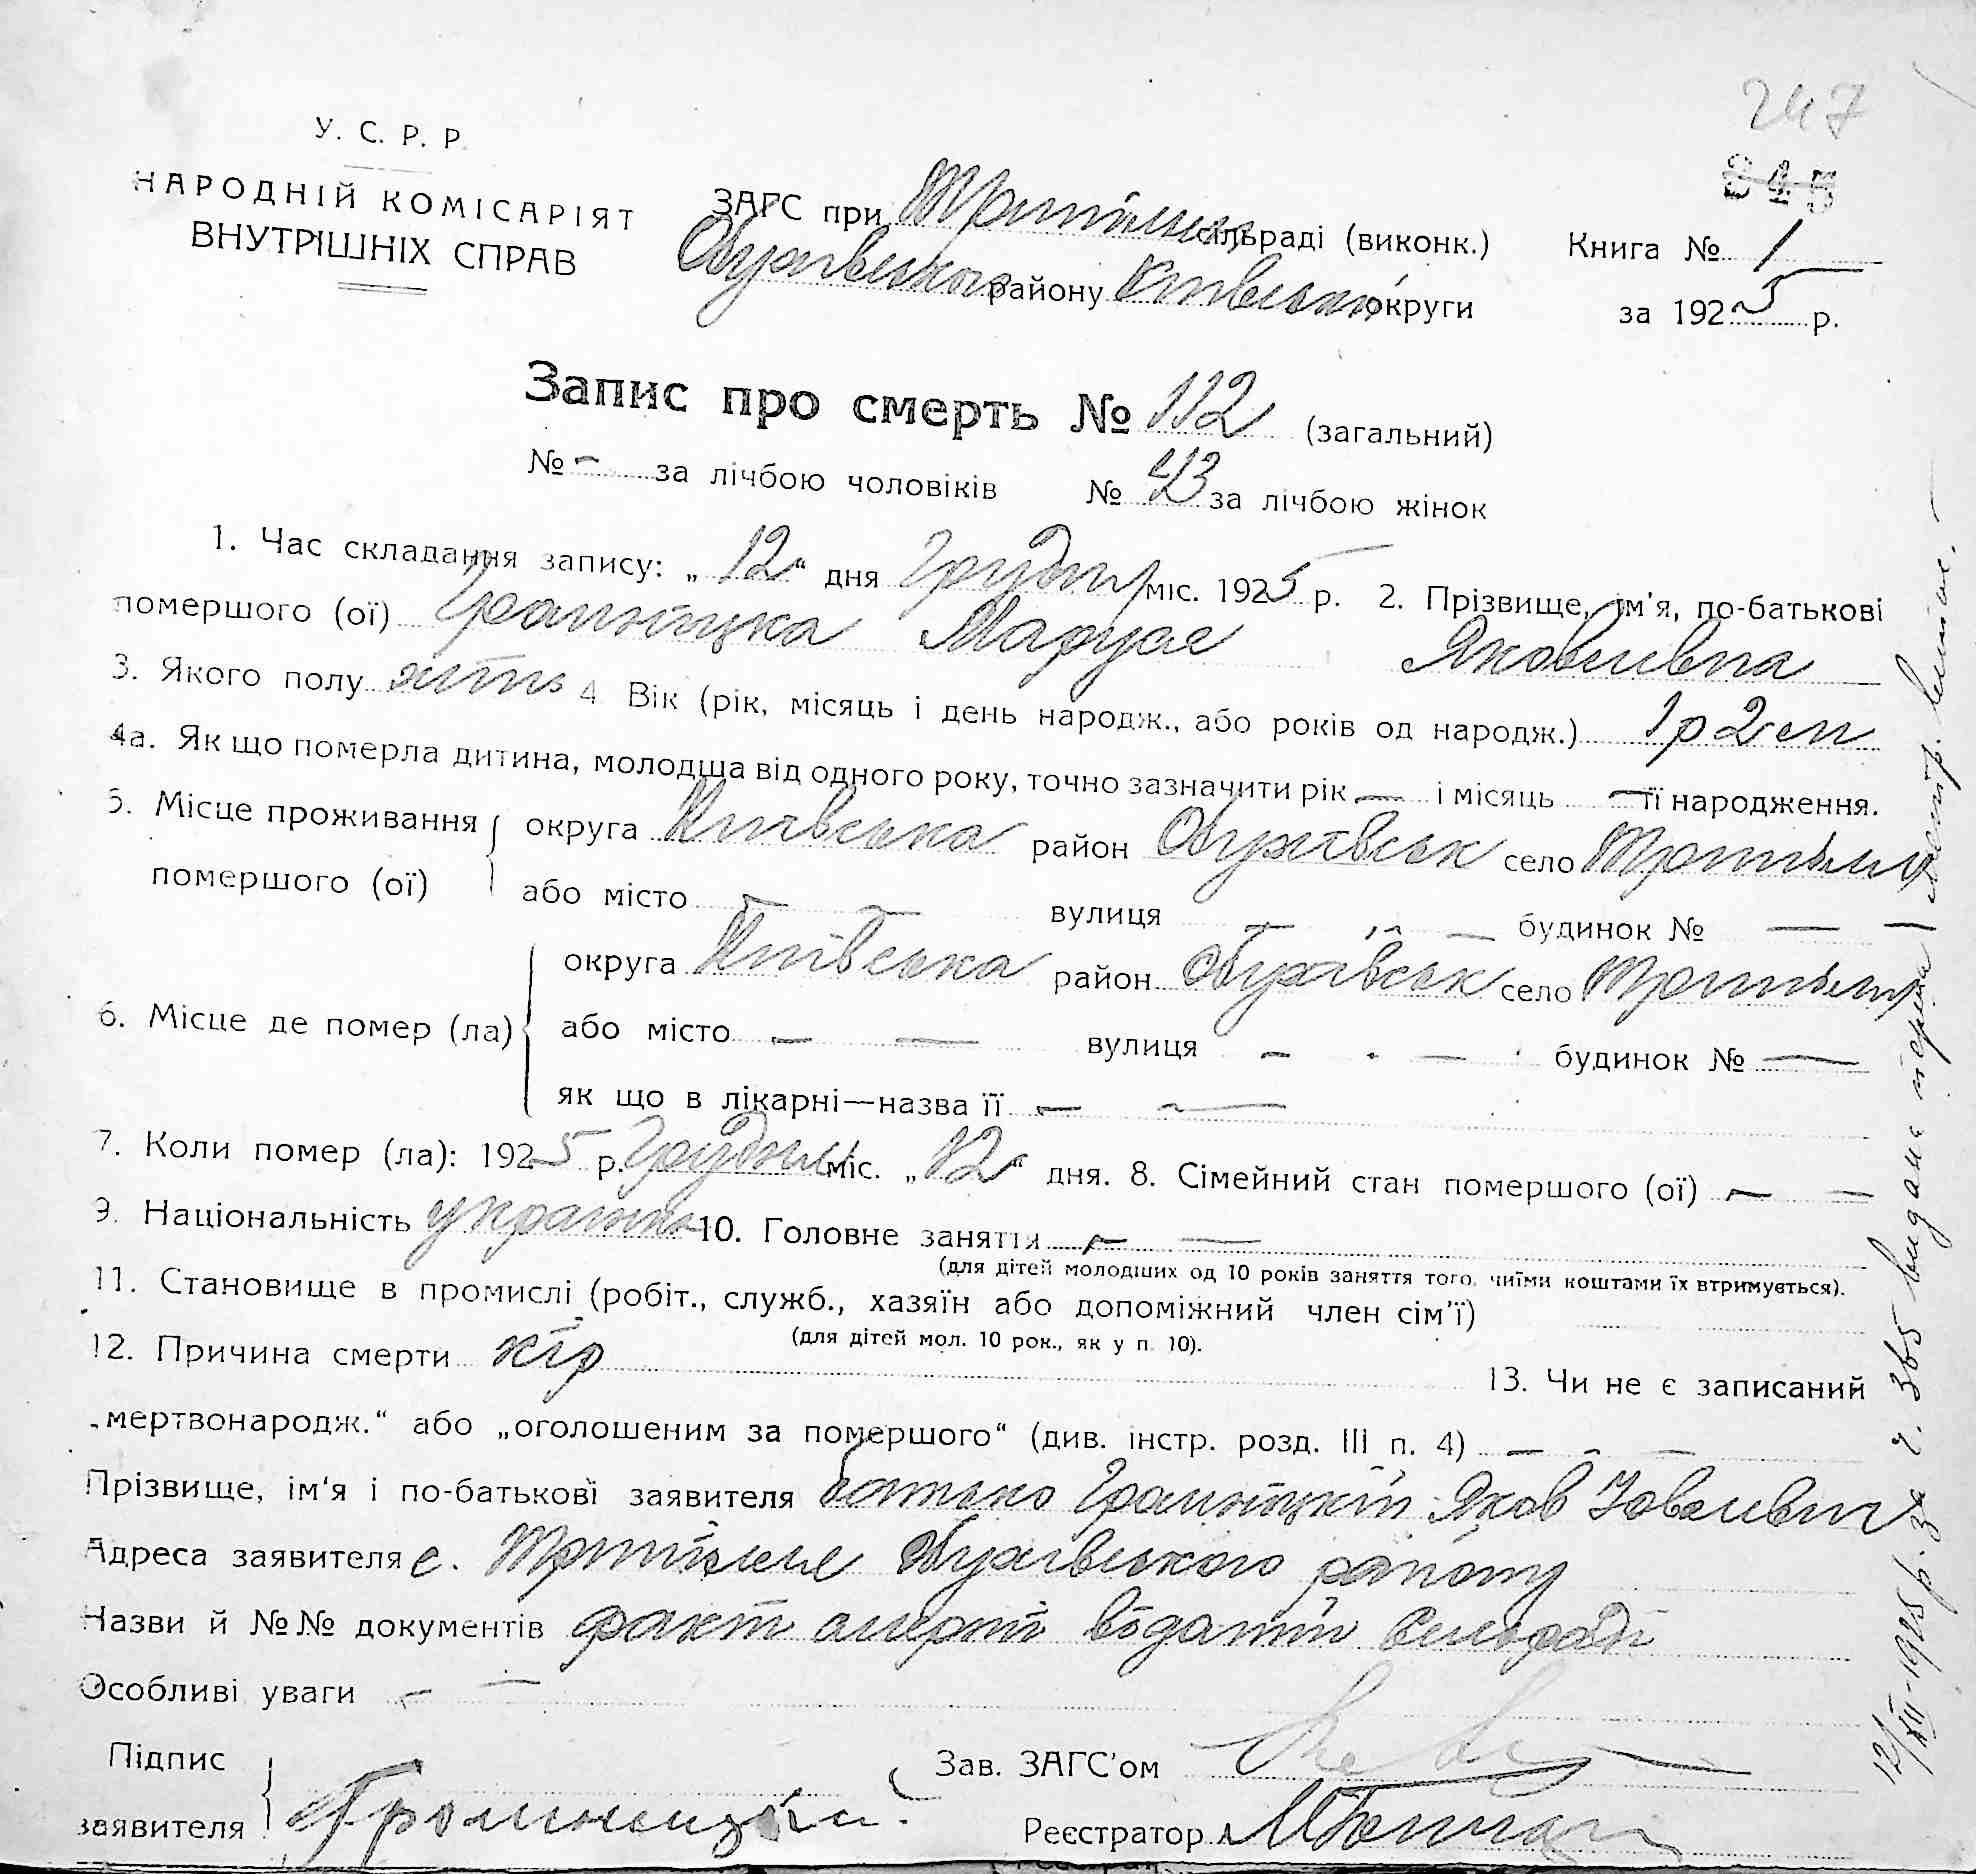 247
345
У. С. Р. Р.
НАРОДНІЙ КОМІСАРІЯТ
ВНУТРІШНІХ СПРАВ
ЗАГС при Трипільськ сільраді (виконк.) Книга № 1
Обухівського району Київської округи за 1925 р.
Запис про смерть № 112 (загальний)
№ – за лічбою чоловіків № 43 за лічбою жінок
1. Час складання запису: „12“ дня Грудня міс. 1925 р. 2. Прізвище, ім'я, по-батькові
помершого (ої) Маруся Яковлівна
3. Якого полу жін 4 Вік (рік, місяць і день народж., або років од народж.) 1 р 2 м
4а. Як що померла дитина, молодша від одного року, точно зазначити рік — і місяць — її народження.
5. Місце проживання округа Київська район Обухівськ село Трипілля
помершого (ої) або місто — — вулиця — — будинок № — —
округа Київська район Обухівськ село Трипілля
6. Місце де помер (ла) або місто — — вулиця — — будинок № —
як що в лікарні—назва її — —
7. Коли помер (ла): 1925 р. Грудня міс. „12“ дня. 8. Сімейний стан помершого (ої) — —
9. Національність україн 10. Головне заняття — —
(для дітей молодших од 10 років заняття того, чиїми коштами їх втримується).
11. Становище в промислі (робіт., служб., хазяїн або допоміжний член сім'ї)
(для дітей мол. 10 рок., як у п. 10).
12. Причина смерти кір
13. Чи не є записаний
„мертвонародж.“ або „оголошеним за помершого“ (див. інстр. розд. III п. 4) — – —
Прізвище, ім'я і по-батькові заявителя батько Яков
Адреса заявителя с. Трипілля Обухівського району
Назви й №№ документів факт смерти відатий Сільраді
Особливі уваги – —
Підпис
заявителя
Зав. ЗАГС'ом
Реєстратор
12/XII-1925 р. за ч. 365 видана